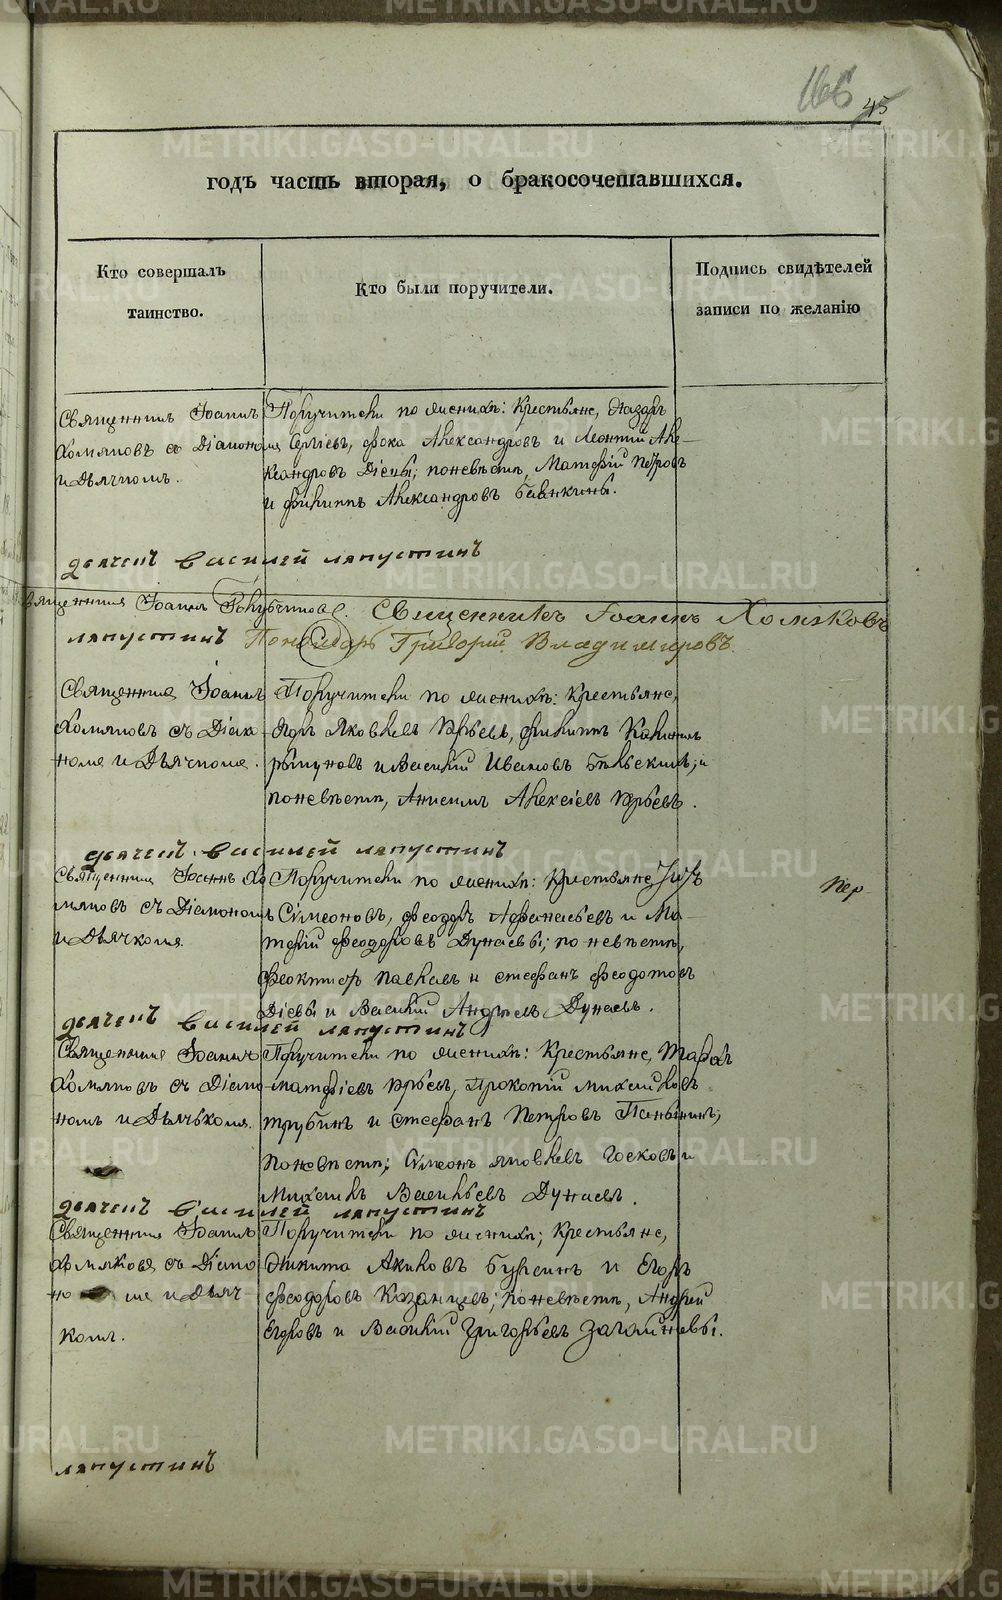 166 45
годъ часть вторая, о бракосочетавшихся.
Кто совершалъ
таинство.
Кто были поручители.
Подпись свидѣтелей
записи по желанію
Священникъ Іоаннъ
Хомяковъ съ Діакономъ
и Дьячкомъ.
Поручители по женихѣ: Крестьяне, Назаръ
Сергіевъ, Фока Александровъ и Леонтій Але-
ксандровъ Діевы; по невѣстѣ, Матфій Петровъ
и Филиппъ Александровъ
дьячекъ василей ляпустинъ
Священникъ Іоаннъ Голубчиковъ. Священникъ Іоаннъ Хомяковъ
ляпустинъ Пономарь Григорій Владимировъ.
Священникъ Іоаннъ
Хомяковъ съ Діако
номъ и Дьячкомъ.
Поручители по женихѣ: Крестьяне,
Егоръ Яковлевъ Юрьевъ, Филиппъ
и Василій Ивановъ Бѣльскихъ; и
по невѣстѣ, Анисимъ Алексіевъ Юрьевъ.
дьячекъ василей ляпустинъ
Священникъ Іоаннъ Хо
мяковъ съ Діакономъ
и Дьячкомъ.
Поручители по женихѣ: Крестьяне,
Сѵмеоновъ, Феодоръ Афанасьевъ и Ма-
тфій Феодоровъ Дунаевы; по невѣстѣ,
Павловъ и Стефанъ Феодотовъ
Діевы и Василій Андреевъ Дунаевъ.
Пер-
дьячекъ василей ляпустинъ
Священникъ Іоаннъ
Хомяковъ съ Діако
номъ и Дьячькомъ.
Поручители по женихѣ: Крестьяне, Тарасъ
Матфіевъ Юрьевъ, Прокопій Михайловъ
Трубинъ и Стефанъ Петровъ Паньшинъ;
по невѣстѣ; Сѵмеонъ Яковлевъ и
Михаилъ Васильевъ Дунаевъ.
дьячекъ василей ляпустинъ
Священникъ Іоаннъ
Хомяковъ съ Діако
но мъ и Дьяч-
комъ.
Поручители по женихѣ; Крестьяне,
Никита Акиловъ и Егоръ
Феодоровъ Казанцевъ; по невѣстѣ, Андрей
Егоровъ и Василій Григорьевъ Загайновы.
ляпустинъ
METRIKI.GASO-URAL.RU